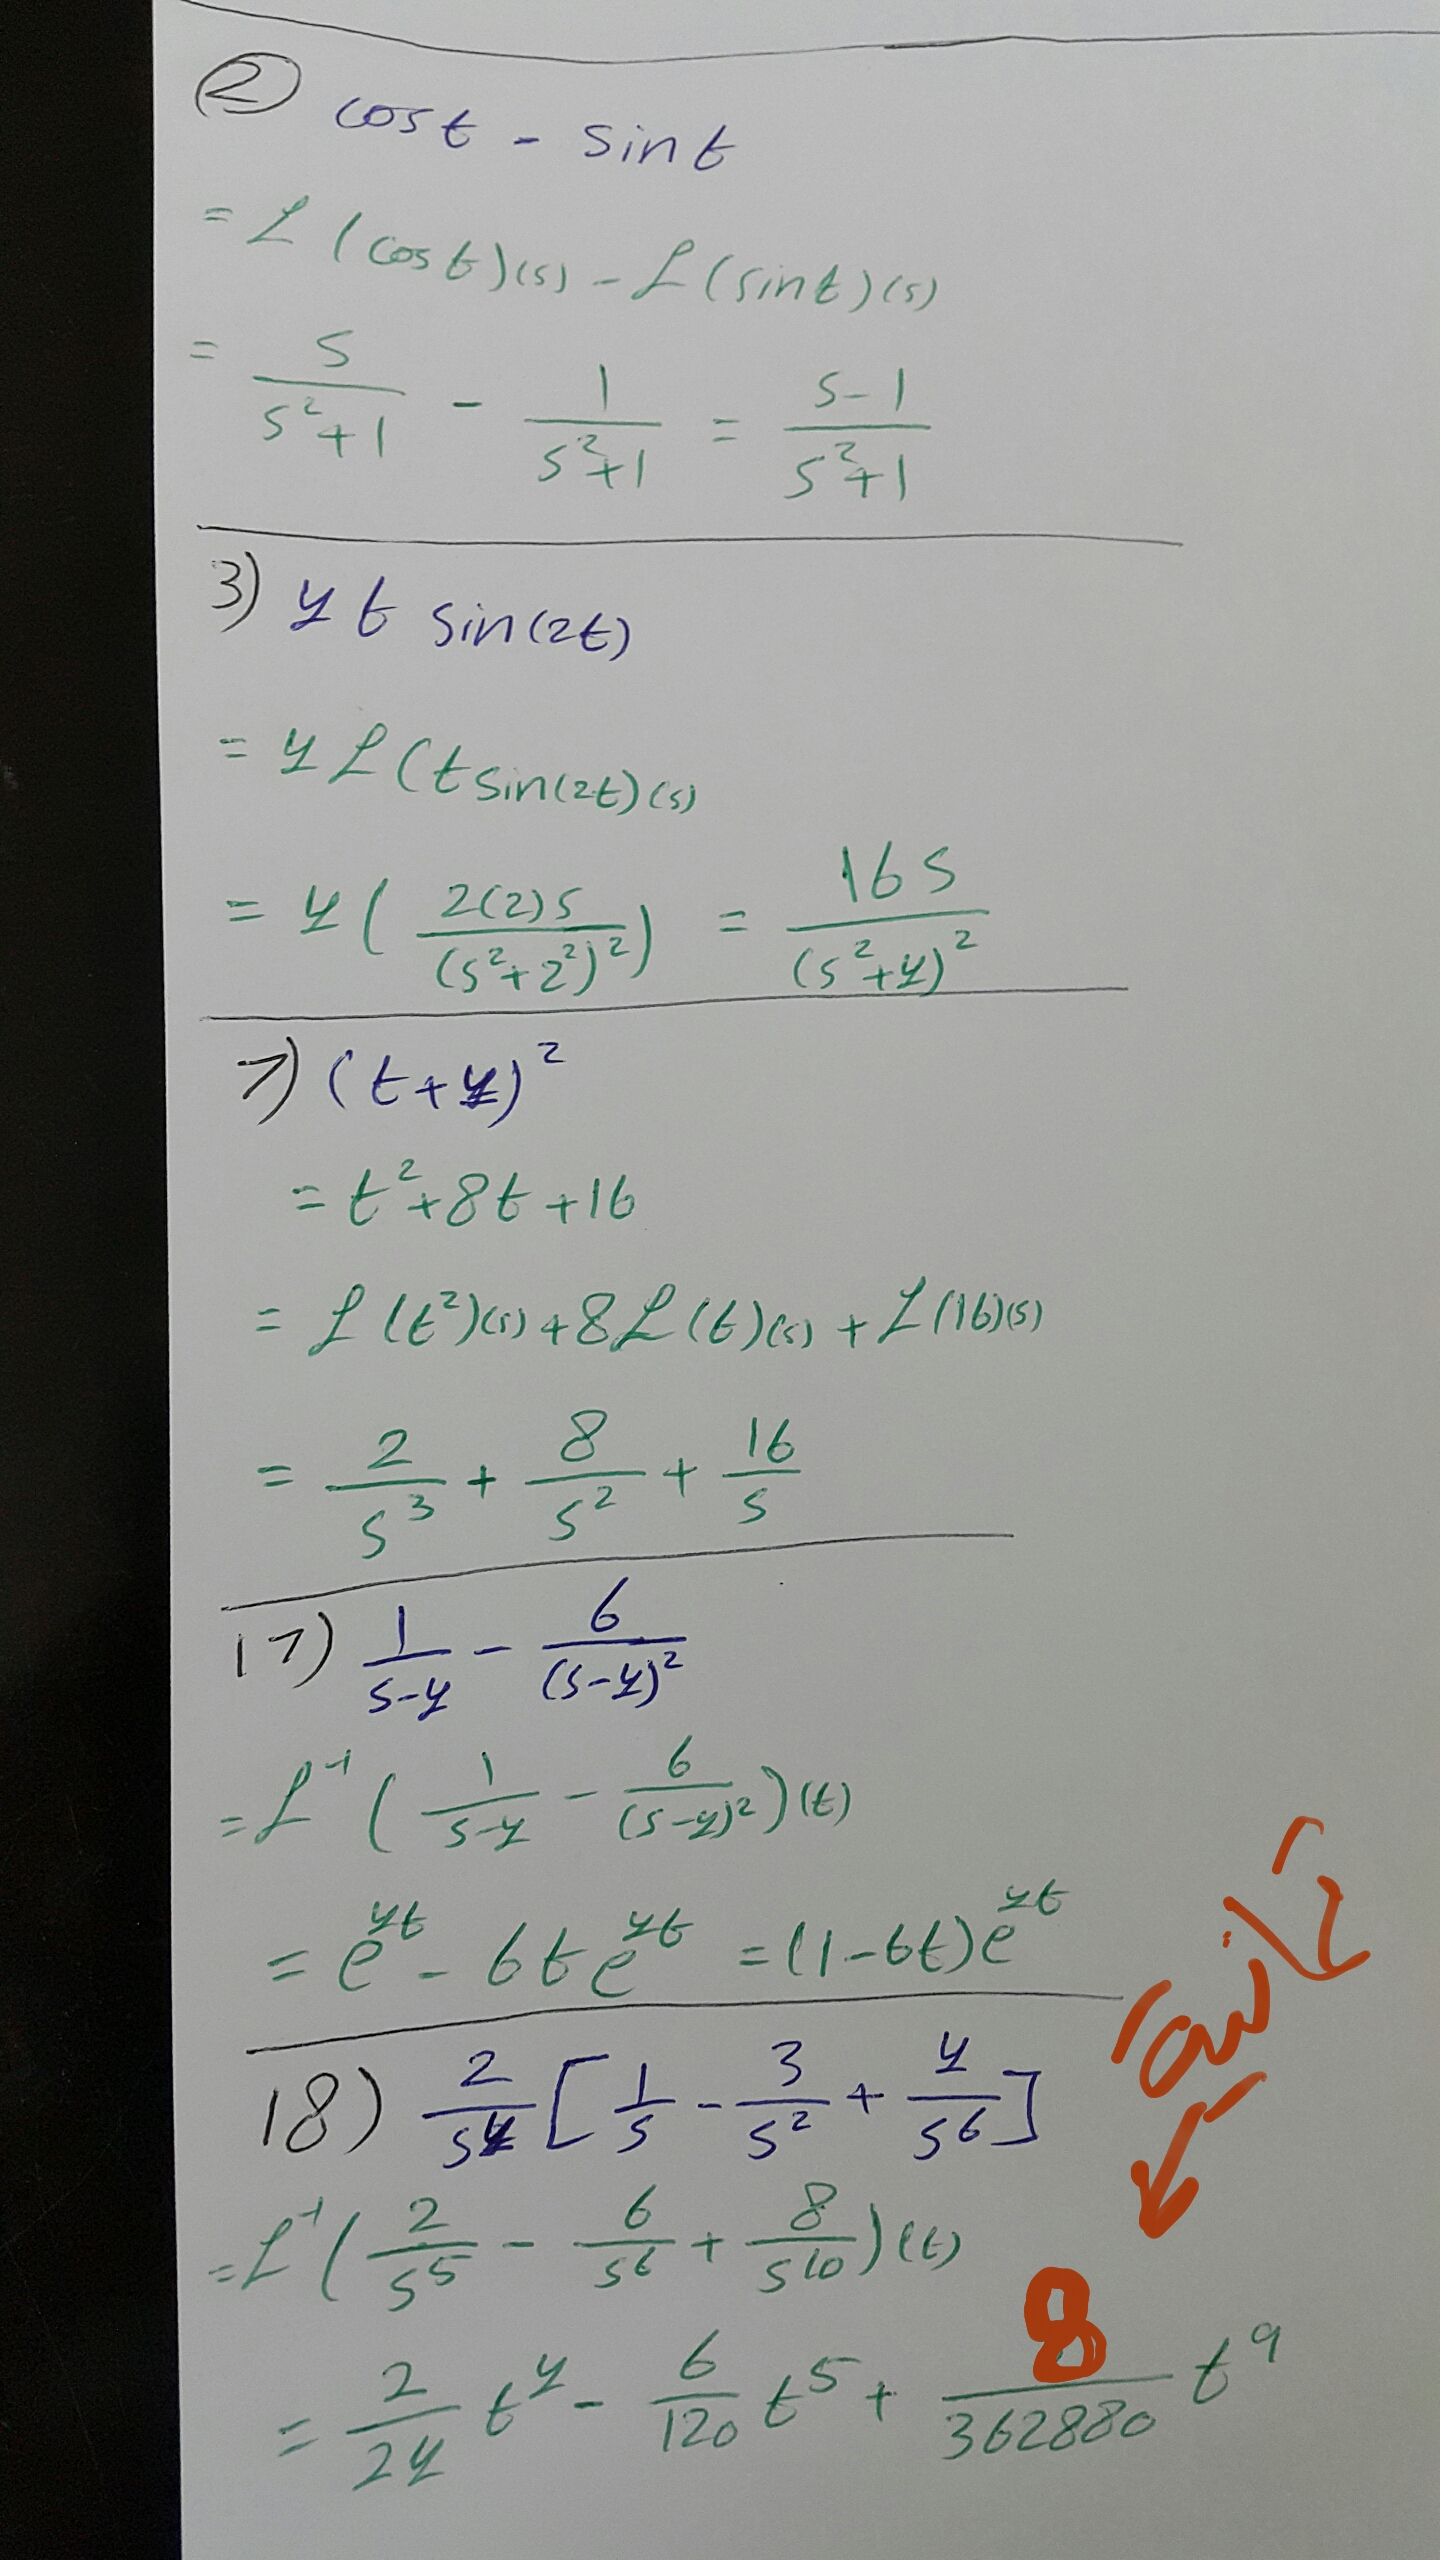 ② cost - sint
= ℒ(cost)(s) - ℒ(sint)(s)
= s/(s²+1) - 1/(s²+1) = (s-1)/(s²+1)
3) 4t sin(2t)
= 4ℒ(t sin(2t)(s)
= 4(2(2)s/(s²+2²)²) = 16s/(s²+4)²
7) (t+4)²
= t²+8t+16
= ℒ(t²)(s)+8ℒ(t)(s)+ℒ(16)(s)
= 2/s³ + 8/s² + 16/s
17) 1/(s-4) - 6/(s-4)²
= ℒ⁻¹(1/(s-4) - 6/(s-4)²)(t)
= e⁴ᵗ - 6te⁴ᵗ = (1-6t)e⁴ᵗ
18) 2/s⁴ [1/s - 3/s² + 4/s⁶]
= ℒ⁻¹(2/s⁵ - 6/s⁶ + 8/s¹⁰)(t)
= 2/24 t⁴ - 6/120 t⁵ + 8/362880 t⁹